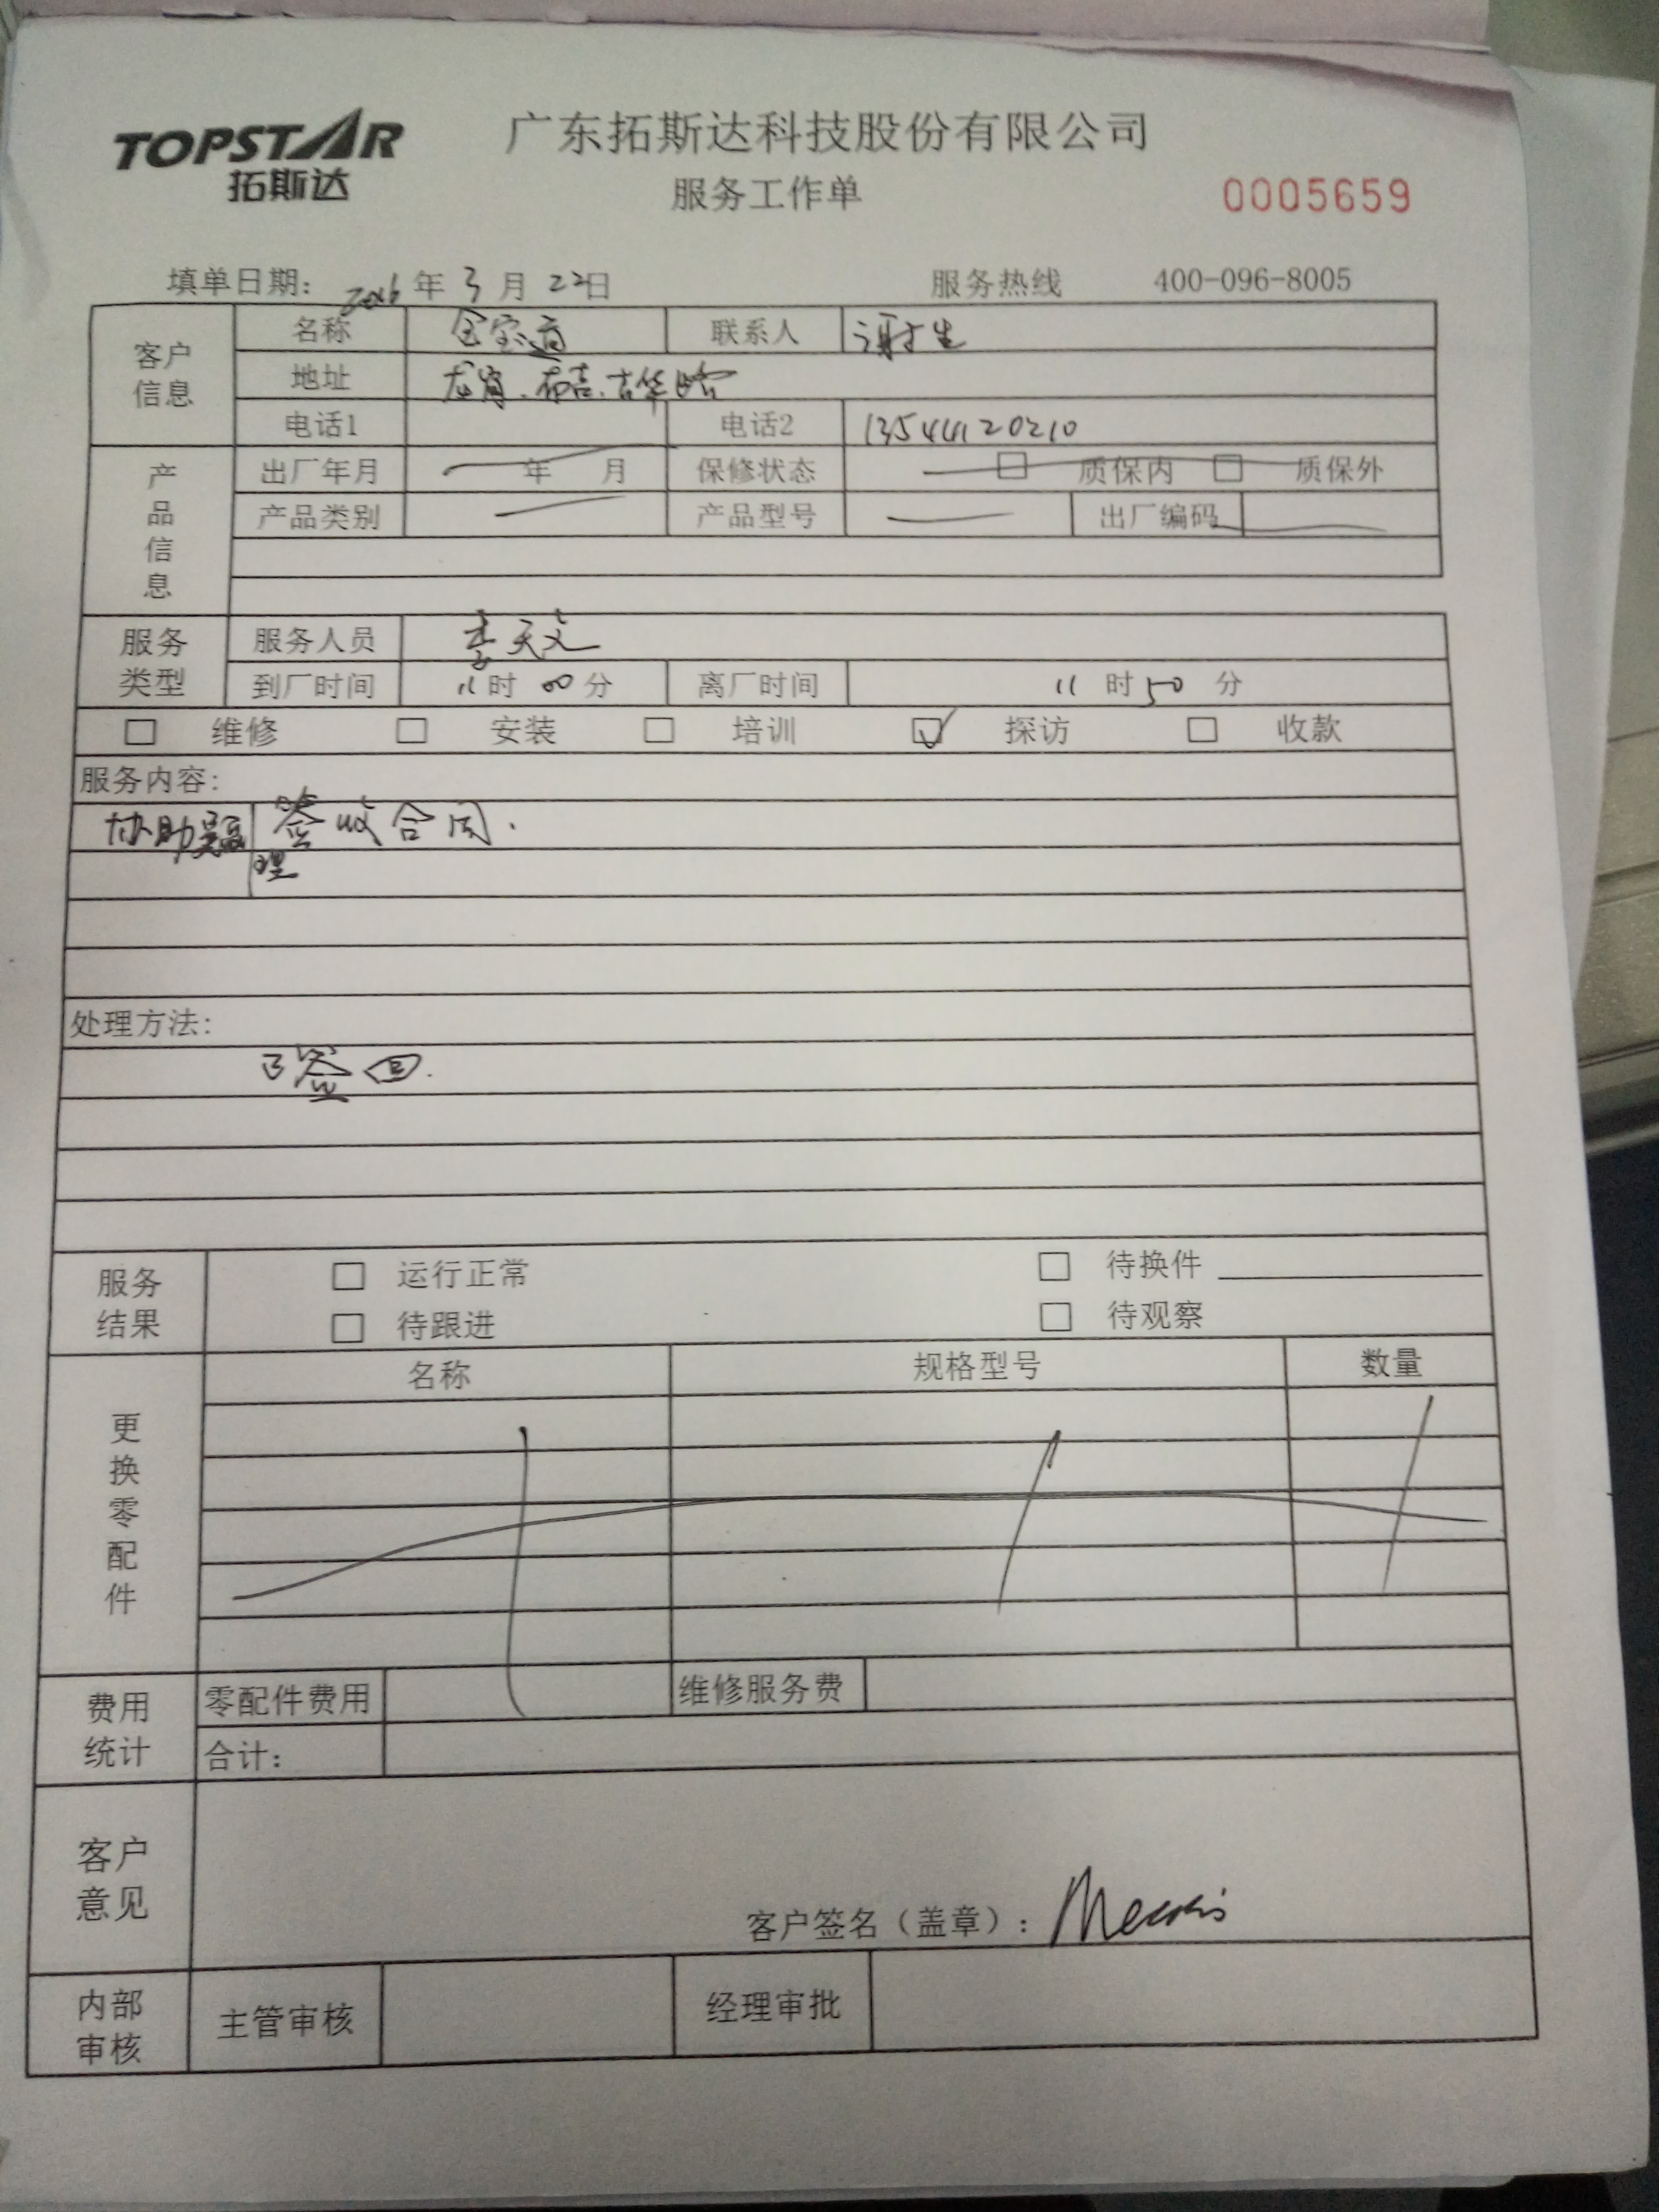 TOPSTAR
拓斯达
广东拓斯达科技股份有限公司
服务工作单
0005659
填单日期: 2016 年 3 月 22日 服务热线 400-096-8005
客户信息
名称 金宝通 联系人 谢生
地址 龙岗.布吉.吉华路
电话1 电话2 13544120210
产品信息
出厂年月 年 月 保修状态 □ 质保内 □ 质保外
产品类别 产品型号 出厂编码
服务类型
服务人员 李天文
到厂时间 11时 00分 离厂时间 11 时 50 分
□ 维修 □ 安装 □ 培训 ☑ 探访 □ 收款
服务内容:
协助 签收合同.
理
处理方法:
已签回.
服务结果
□ 运行正常 □ 待换件
□ 待跟进 □ 待观察
更换零配件
名称 规格型号 数量
费用统计
零配件费用 维修服务费
合计:
客户意见
客户签名(盖章):
内部审核
主管审核 经理审批